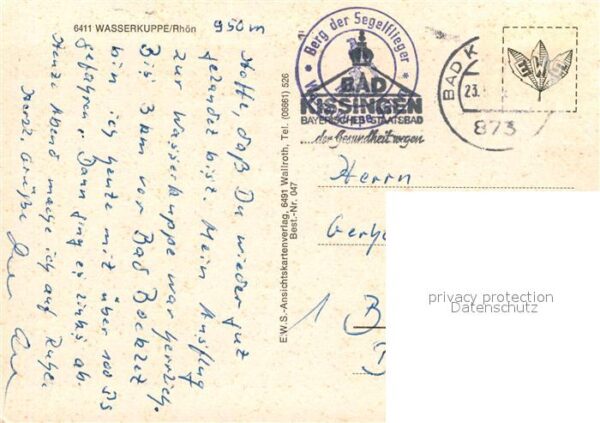 6411 WASSERKUPPE/Rhön
950m
Hoffe, daß Du wieder gut
gelandet bist. Mein Ausflug
zur Wasserkuppe war herrlich.
Bis 3 km vor Bad Bocklet
bin ich heute mit über 100 Sa
gefahren. Dann ging es links ab.
Heute Abend mache ich auf Ruhe.
Herzl. Grüße
E.W.S.-Ansichtskartenverlag, 6491 Wallroth, Tel. (06661) 526
Best.-Nr. 047
Berg der Segelflieger
BAD
KISSINGEN
BAYERISCHES STAATSBAD
der Gesundheit wegen
BAD K
23.
873
E W S
Herrn
Gerh
1 B
privacy protection
Datenschutz